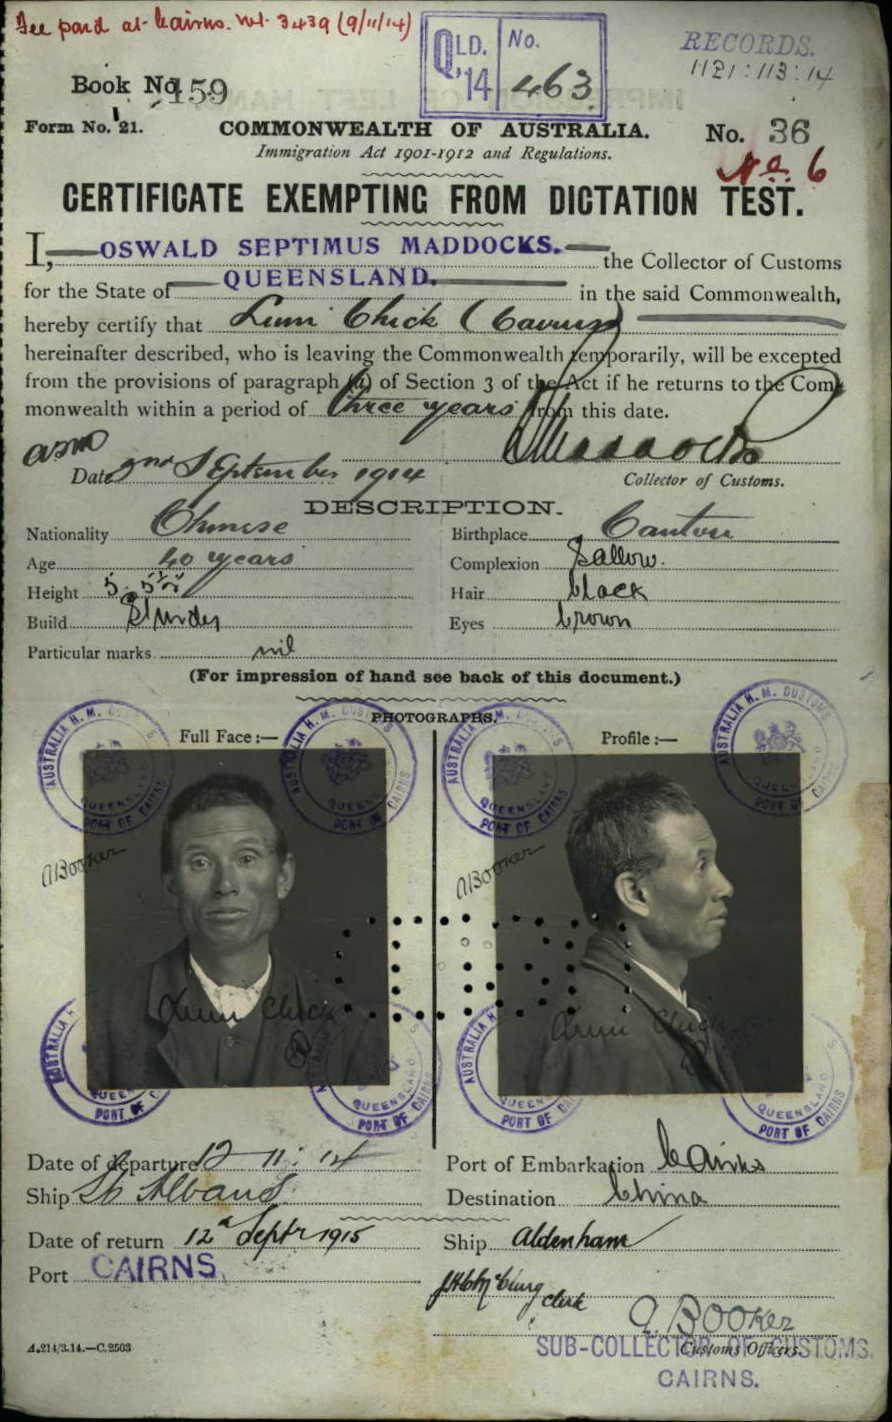 Fee paid at Cairns. 3439 (9/11/14)
QLD. No.
'14 463
RECORDS.
1121:113:14
Book No. 159
Form No. 21.
COMMONWEALTH OF AUSTRALIA.
No. 36
Immigration Act 1901-1912 and Regulations.
No. 6
CERTIFICATE EXEMPTING FROM DICTATION TEST.
I, OSWALD SEPTIMUS MADDOCKS. the Collector of Customs
for the State of QUEENSLAND. in the said Commonwealth,
hereby certify that Lum Chick (Cairns)
hereinafter described, who is leaving the Commonwealth temporarily, will be excepted
from the provisions of paragraph (a) of Section 3 of the Act if he returns to the Com-
monwealth within a period of Three years from this date.
Date 2nd September 1914
Maddocks
Collector of Customs.
DESCRIPTION.
Nationality Chinese Birthplace Canton
Age 40 years Complexion Sallow.
Height Hair black
Build Slender Eyes brown
Particular marks nil
(For impression of hand see back of this document.)
PHOTOGRAPHS.
Full Face :— Profile :—
AUSTRALIA H. M. CUSTOMS QUEENSLAND PORT OF CAIRNS
AUSTRALIA H. M. CUSTOMS QUEENSLAND PORT OF CAIRNS
AUSTRALIA H. M. CUSTOMS QUEENSLAND PORT OF CAIRNS
AUSTRALIA H. M. CUSTOMS QUEENSLAND PORT OF CAIRNS
ABooker ABooker
Lum Chick Lum Chick
AUSTRALIA QUEENSLAND PORT OF
QUEENSLAND PORT OF CAIRNS
AUSTRALIA QUEENSLAND PORT OF
QUEENSLAND PORT OF CAIRNS
Date of departure 12 11: 14 Port of Embarkation Cairns
Ship St Albans Destination China
Date of return 12th Septr 1915 Ship Aldenham
Port CAIRNS.
clerk
A. BOOKER
Customs Officers.
SUB-COLLECTOR OF CUSTOMS.
CAIRNS.
A.214/3.14.—C.2503